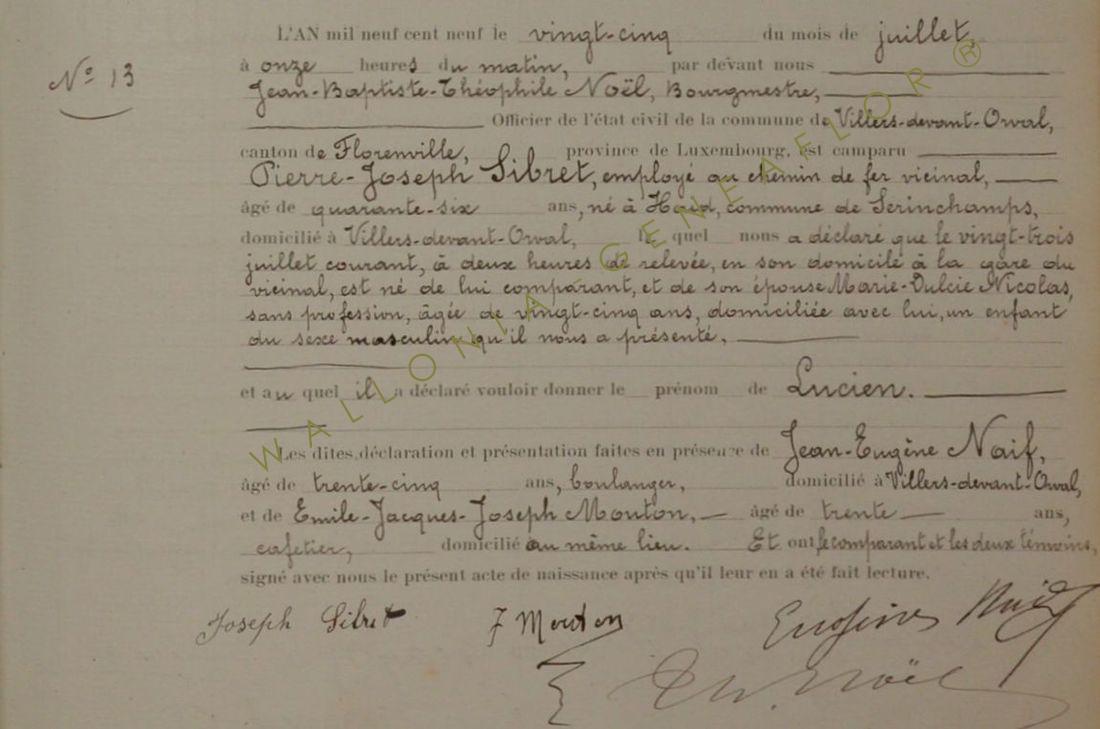 L'AN mil neuf cent neuf le vingt-cinq du mois de juillet,
N° 13
à onze heures du matin, par devant nous
Jean-Baptiste-Théophile Noël, Bourgmestre,
Officier de l'état civil de la commune de Villers-devant-Orval,
canton de Florenville, province de Luxembourg, est comparu
Pierre-Joseph Sibret, employé au chemin de fer vicinal,
âgé de quarante-six ans, né à Haid, commune de Serinchamps,
domicilié à Villers-devant-Orval, le quel nous a déclaré que le vingt-trois
juillet courant, à deux heures de relevée, en son domicile à la gare du
vicinal, est né de lui comparant, et de son épouse Marie-Dulcie Nicolas,
sans profession, âgée de vingt-cinq ans, domiciliée avec lui, un enfant
du sexe masculin qu'il nous a présenté,
et au quel il a déclaré vouloir donner le prénom de Lucien.
Les dites déclaration et présentation faites en présence de Jean-Eugène Naif,
âgé de trente-cinq ans, boulanger, domicilié à Villers-devant-Orval,
et de Emile-Jacques-Joseph Mouton, âgé de trente ans,
cafetier, domicilié au même lieu. Et ont, le comparant et les deux témoins,
signé avec nous le présent acte de naissance après qu'il leur en a été fait lecture.
Joseph Sibret J Mouton Eugène Naif
Th. Noël
WALLONIA GENEALOR ®